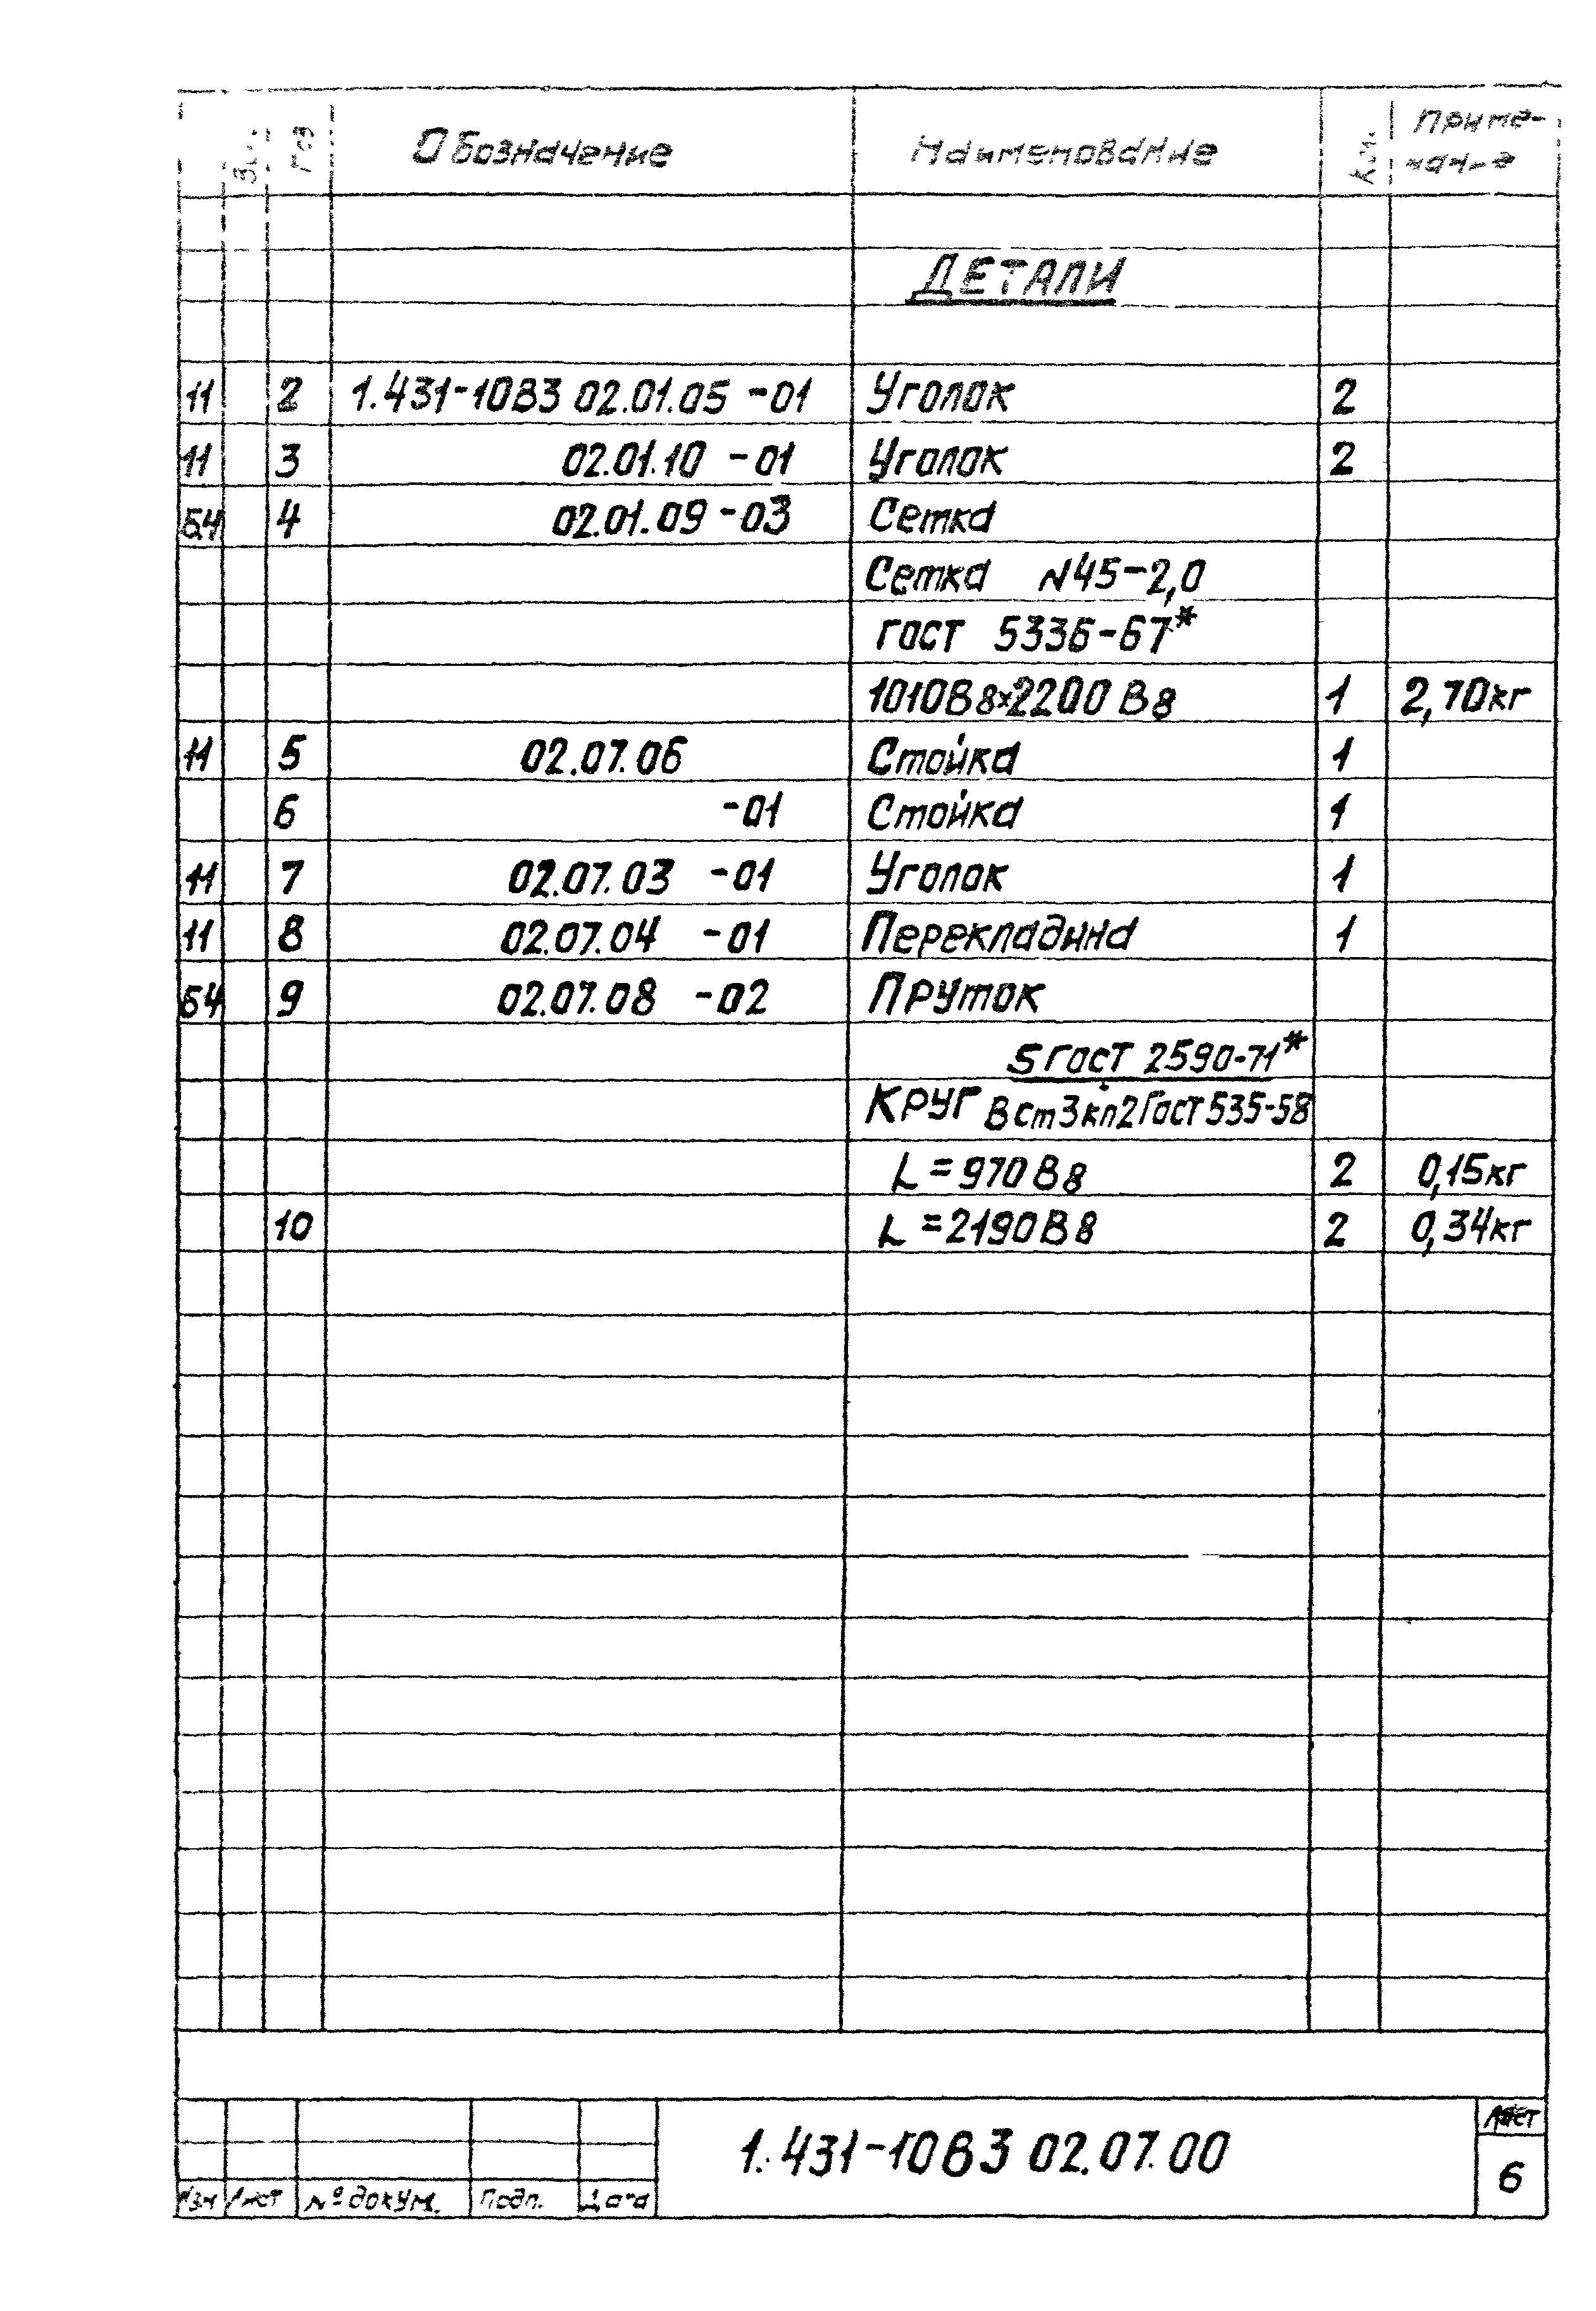 Поз Обозначение Наименование Кол. Приме-
чание
ДЕТАЛИ
11 2 1.431-10В3 02.01.05 -01 Уголок 2
11 3 02.01.10 -01 Уголок 2
БЧ 4 02.01.09 -03 Сетка
Сетка N45-2,0
ГОСТ 5336-67*
1010В8x2200В8 1 2,70кг
11 5 02.07.06 Стойка 1
6 -01 Стойка 1
11 7 02.07.03 -01 Уголок 1
11 8 02.07.04 -01 Перекладина 1
БЧ 9 02.07.08 -02 Пруток
5 ГОСТ 2590-71*
Круг ВСт3кп2 ГОСТ 535-58
L=970В8 2 0,15кг
10 L=2190В8 2 0,34кг
1.431-10В3 02.07.00
Лист
6
Изм Лист № докум. Подп. Дата